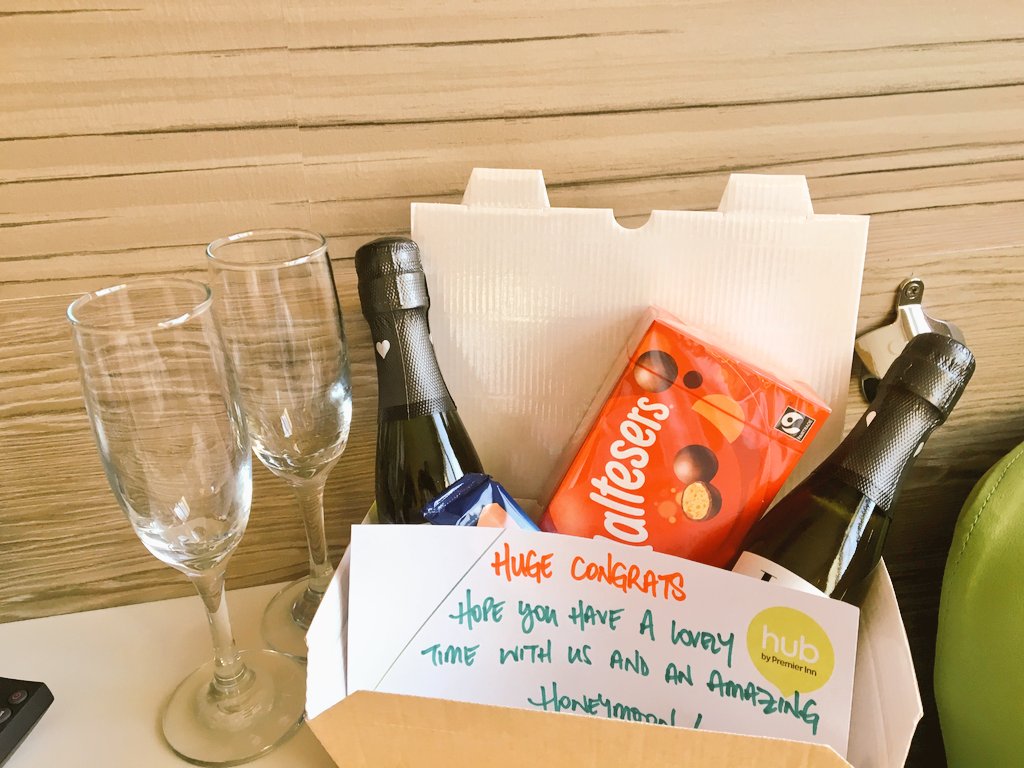 altesers
HUGE CONGRATS
HOPE YOU HAVE A LOVELY
TIME WITH US AND AN AMAZING
HONEYMOON!
hub
by Premier Inn